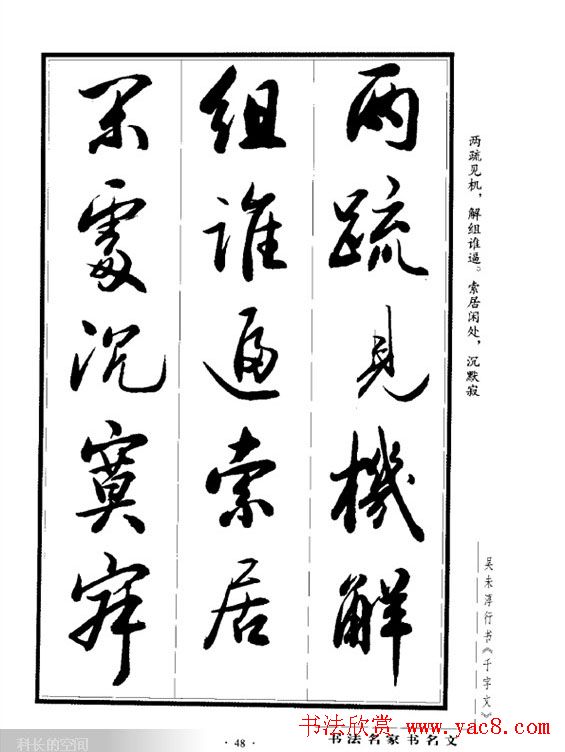 两疏見機解
組誰逼索居
閑處沉寞寂
两疏见机，解组谁逼。索居闲处，沉默寂
吴未淳行书《千字文》
· 48 ·
书法名家书名文
书法欣赏 www.yac8.com
科长的空间